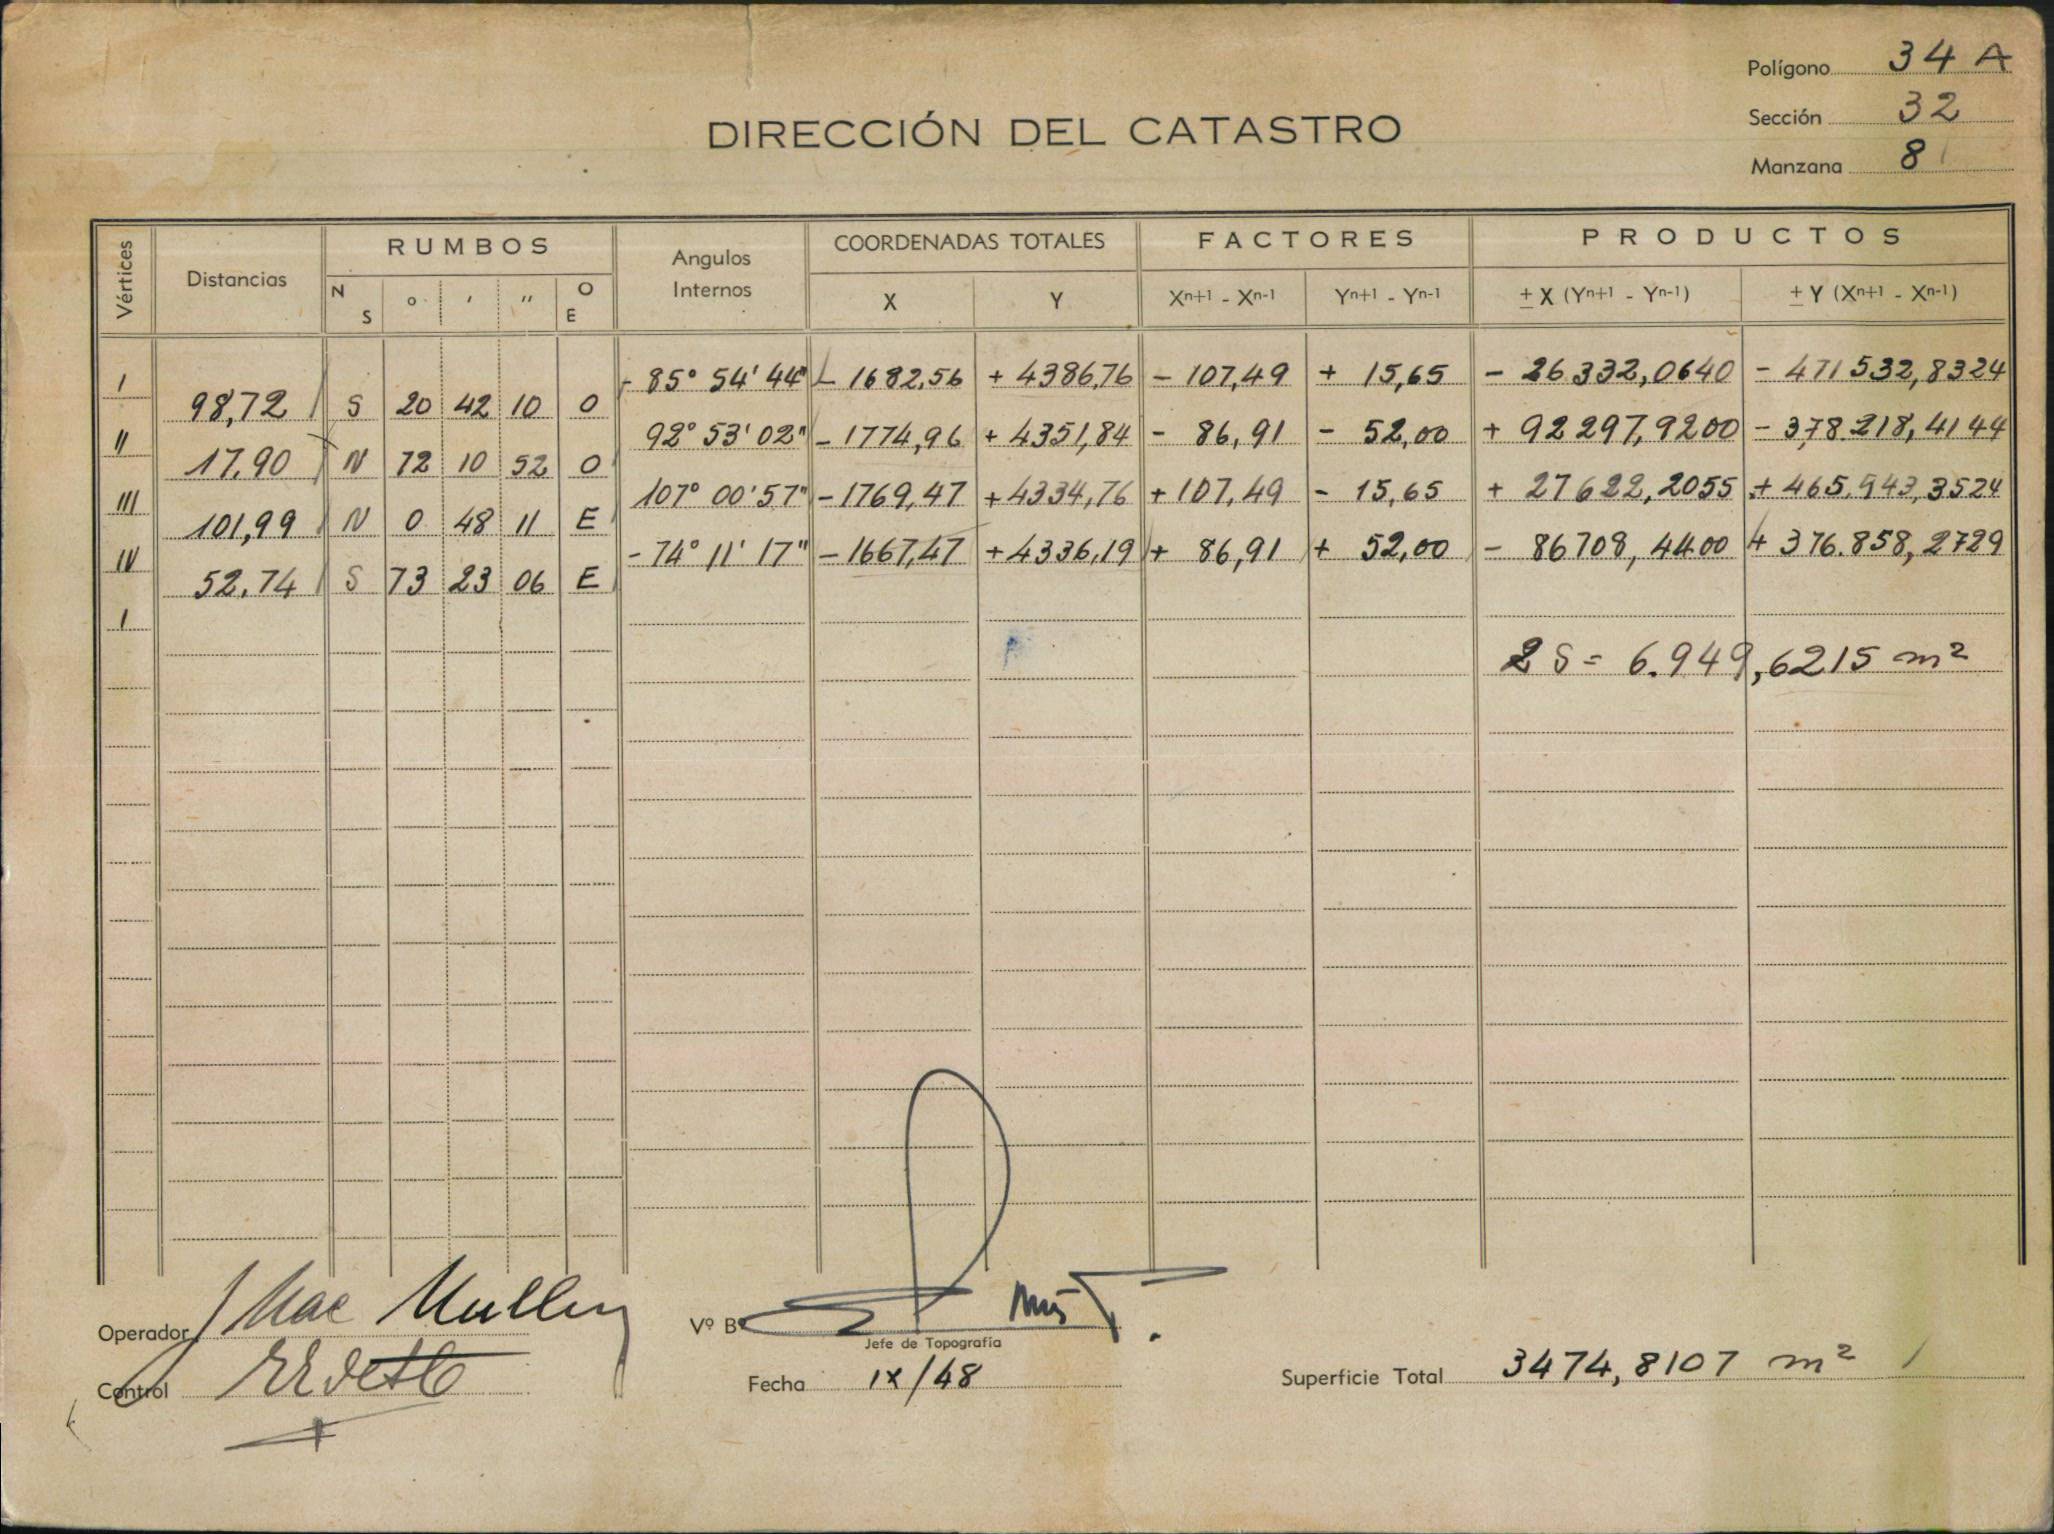 Polígono 34 A
Sección 32
Manzana 8
DIRECCIÓN DEL CATASTRO
Vértices Distancias RUMBOS Angulos Internos COORDENADAS TOTALES FACTORES PRODUCTOS
N S o ' '' O E X Y Xn+1 - Xn-1 Yn+1 - Yn-1 ± X (Yn+1 - Yn-1) ± Y (Xn+1 - Xn-1)
I - 85° 54' 44" - 1682,56 + 4386,76 - 107,49 + 15,65 - 26332,0640 - 471532,8324
98,72 S 20 42 10 O
II 92° 53' 02" - 1774,96 + 4351,84 - 86,91 - 52,00 + 92297,9200 - 378.218,4144
17,90 N 72 10 52 O
III 107° 00' 57" - 1769,47 + 4334,76 + 107,49 - 15,65 + 27622,2055 + 465.943,3524
101,99 N 0 48 11 E
IV - 74° 11' 17" - 1667,47 + 4336,19 + 86,91 + 52,00 - 86708,4400 + 376.858,2729
52,74 S 73 23 06 E
I
2 S = 6.949,6215 m²
Operador J Mac Mullen
Vº Bº
Jefe de Topografía
Control
Fecha IX/48
Superficie Total 3474,8107 m²